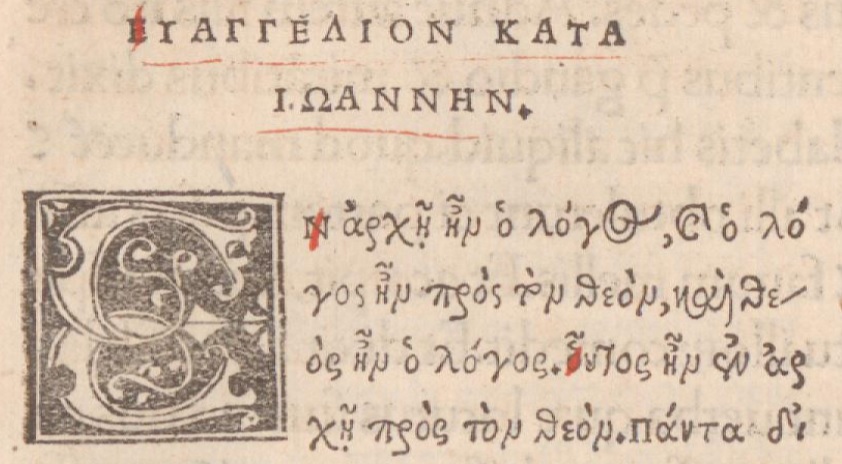 ΕΥΑΓΓΈΛΙΟΝ ΚΑΤΑ
ΙΩΑΝΝΗΝ.
ΕΝ ἀρχῇ ἦν ὁ λόγος, καὶ ὁ λό
γος ἦν πρὸς τὸν θεὸν, καὶ θε-
ὸς ἦν ὁ λόγος. οὗτος ἦν ἐν ἀρ
χῇ πρὸς τὸν θεὸν. πάντα δι